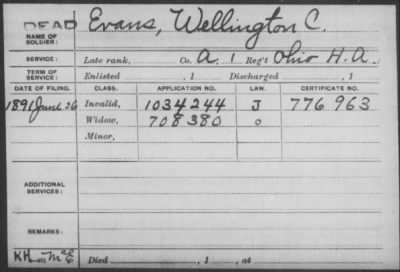 DEAD Evans, Wellington C.
NAME OF SOLDIER:
SERVICE: Late rank, Co. A. 1 Reg't Ohio H. A.
TERM OF SERVICE: Enlisted , 1 Discharged , 1
DATE OF FILING. CLASS. APPLICATION NO. LAW. CERTIFICATE NO.
1891 June 26 Invalid, 1034244 J 776963
Widow, 708380 o
Minor,
ADDITIONAL SERVICES:
REMARKS:
KH
Died , 1 , at